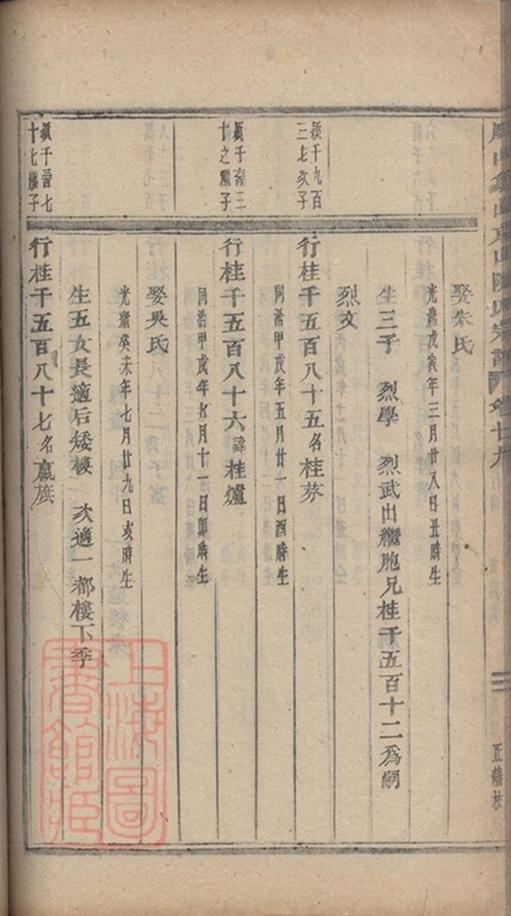 山東山陳氏宗譜
三
娶朱氏
光緒戊寅年三月廿八日丑時生
生三子 烈學 烈武出繼胞兄桂千五百十二爲嗣
烈文
千九百
三七次子
行桂千五百八十五名桂芬
同治甲戌年五月廿一日酉時生
行桂千五百八十六諱桂爐
同治甲戌年七月十一日卯時生
娶吳氏
光緒癸未年七月廿九日亥時生
生五女長適后矮樓 次適一都樓下季
十七繼子
行桂千五百八十七名瀛
上海圖
書館藏